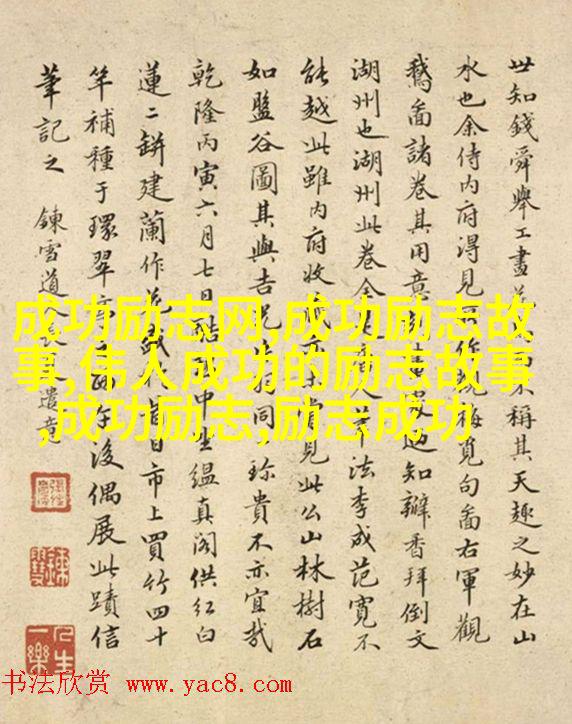 世知錢舜舉工畫不稱其天趣之妙在山
水也余侍内府得見梅覓句啚右軍觀
鵝啚諸卷其用意知瓣香拜倒文
湖州也湖州此卷全法李成范寬不
能越此雖内府收見此公山林樹石
如盤谷圖其與吉同珎貴不亦宜哉
乾隆丙寅六月七日中坐緼真阁供红白
蓮二缾建蘭作日市上買竹四十
竿補種于環翠後偶展此蹟信
筆記之 鍊雪道人
成功励志网,成功励志故
事,伟人成功的励志故事
,成功励志,励志成功
人生一樂
书法欣赏 www.yac8.com